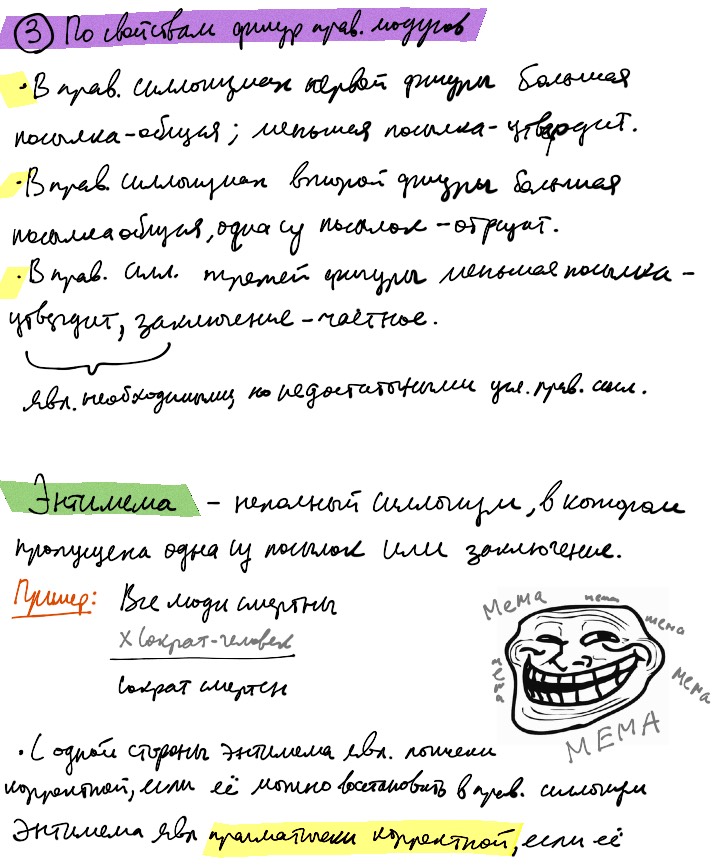 ③ По свойствам фигур прав. модусов
• В прав. силлогизмах первой фигуры большая
посылка-общая; меньшая посылка-утвердит.
• В прав. силлогизмах второй фигуры большая
посылка общая, одна из посылок - отрицат.
• В прав. силл. третьей фигуры меньшая посылка-
утвердит, заключение - частное.
явл. необходимыми, но недостаточными усл. прав. силл.
Энтимема - неполный силлогизм, в котором
пропущена одна из посылок или заключение.
Пример: Все люди смертны
X Сократ-человек
Сократ смертен
Мема мема мема
мема мема
МЕМА
• С одной стороны энтимема явл. логически
корректной, если её можно восстановить в прав. силлогизм
Энтимема явл прагматически корректной, если её